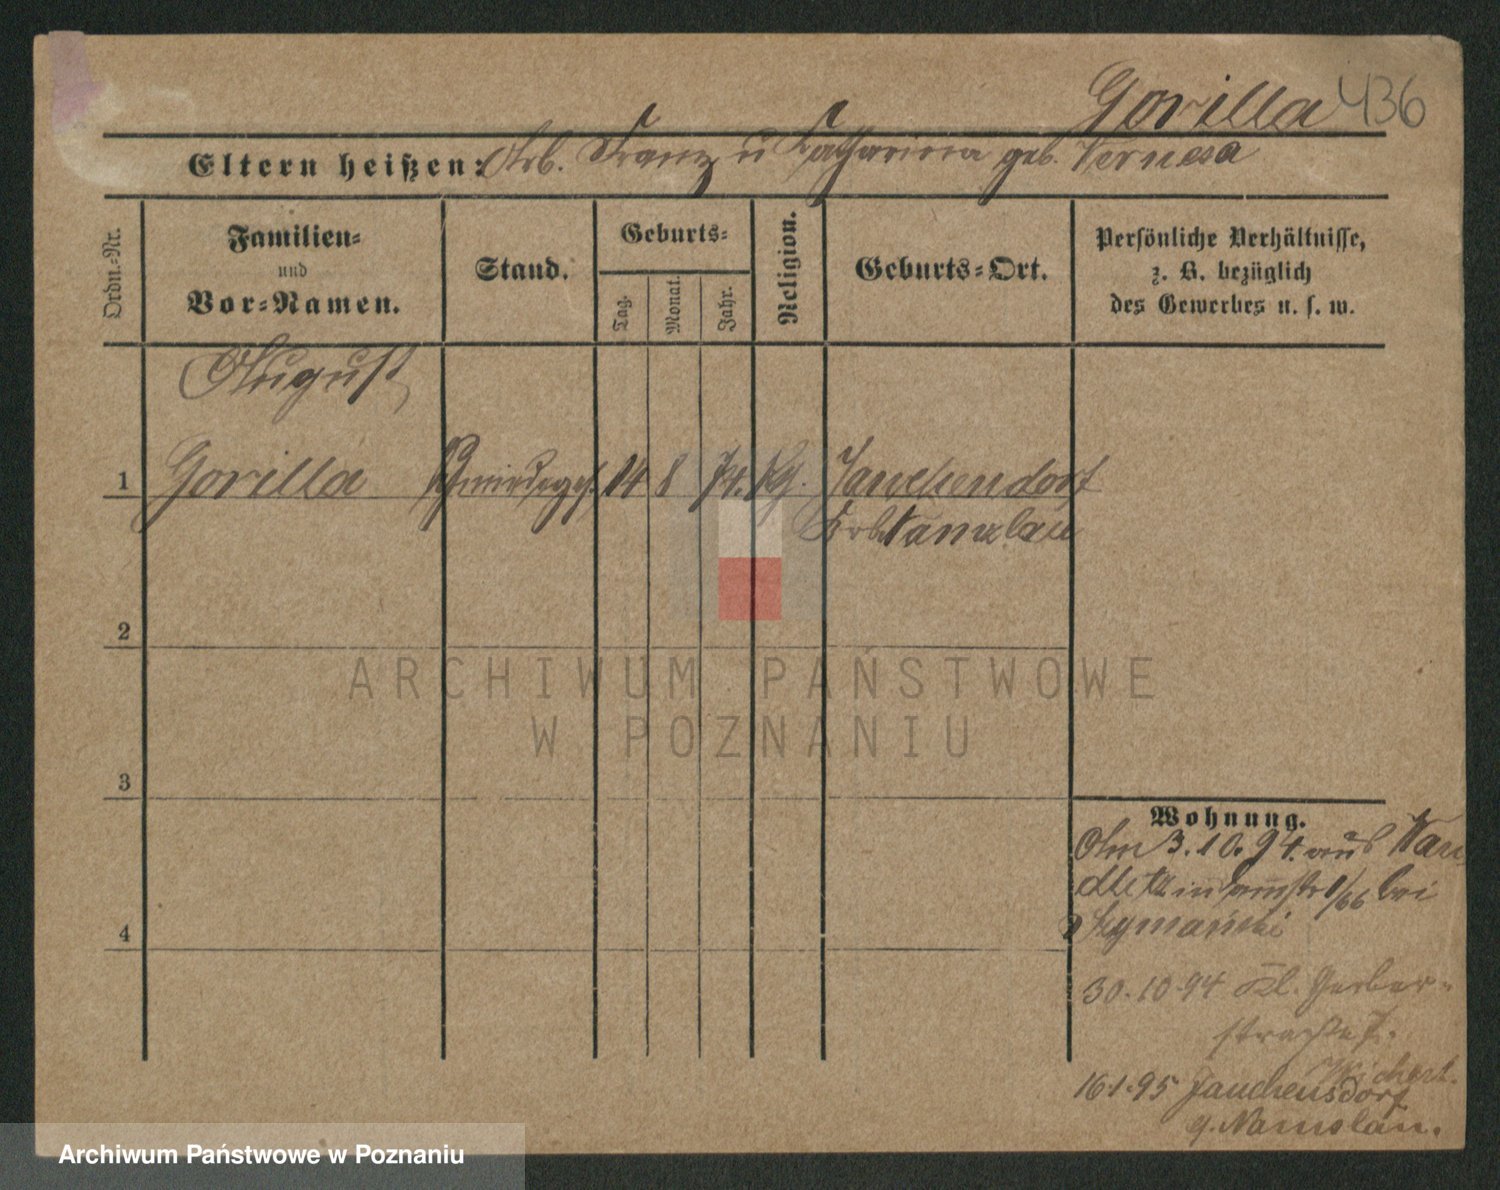 Gorilla 436
Eltern heißen: Arb. Franz u Katharina geb. Vernesa
Ordn.-Nr.
Familien-
und
Vor-Namen.
Stand.
Geburts-
Tag.
Monat.
Jahr.
Religion.
Geburts-Ort.
Persönliche Verhältnisse,
z. B. bezüglich
des Gewerbes u. s. w.
August
1 Gorilla Schmiedeges. 14 8 74. Kg. Jauchendorf
Krb. Namslau
2
ARCHIWUM PAŃSTWOWE
W POZNANIU
3
Wohnung.
Am 3.10.94. aus
in 1/66 bei
Szymański
4
30.10.94 Kl. Gerber-
straße 7.
Wichert.
16.1.95 Jauchendorf
g. Namslau.
Archiwum Państwowe w Poznaniu